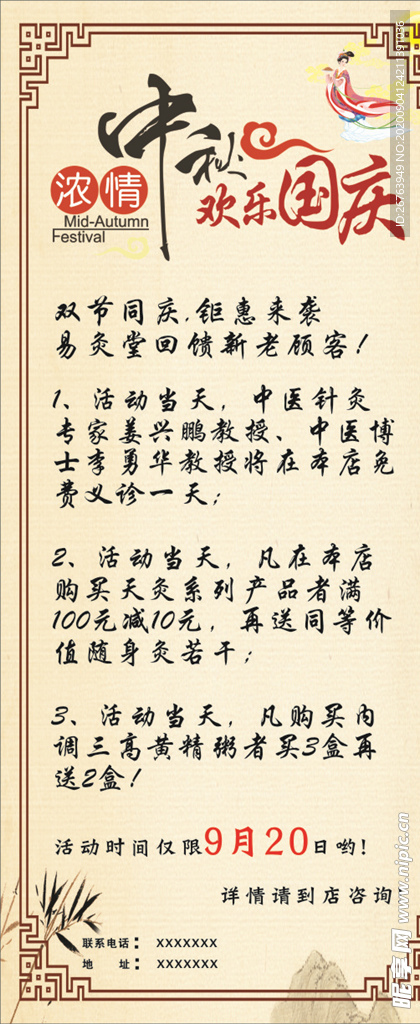 浓情
中秋
Mid-Autumn
Festival
欢乐国庆
双节同庆,钜惠来袭
易灸堂回馈新老顾客!
1、活动当天,中医针灸
专家姜兴鹏教授、中医博
士李勇华教授将在本店免
费义诊一天;
2、活动当天,凡在本店
购买天灸系列产品者满
100元减10元,再送同等价
值随身灸若干;
3、活动当天,凡购买内
调三高黄精粥者买3盒再
送2盒!
活动时间仅限9月20日哟!
详情请到店咨询
联系电话: XXXXXXX
地 址: XXXXXXX
昵享网 www.nipic.cn
ID:26763949 NO:20200904124211391036